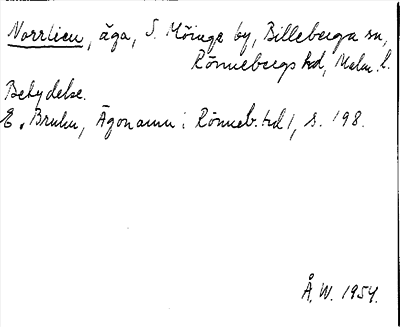 Norrlien, äga, S. Möinge by, Billeberga sn,
Rönnebergs hd, Malm. l.
Betydelse.
E. Bruhn, Ägonamn i Rönneb. hd 1, s. 198.
Å. W. 1954.